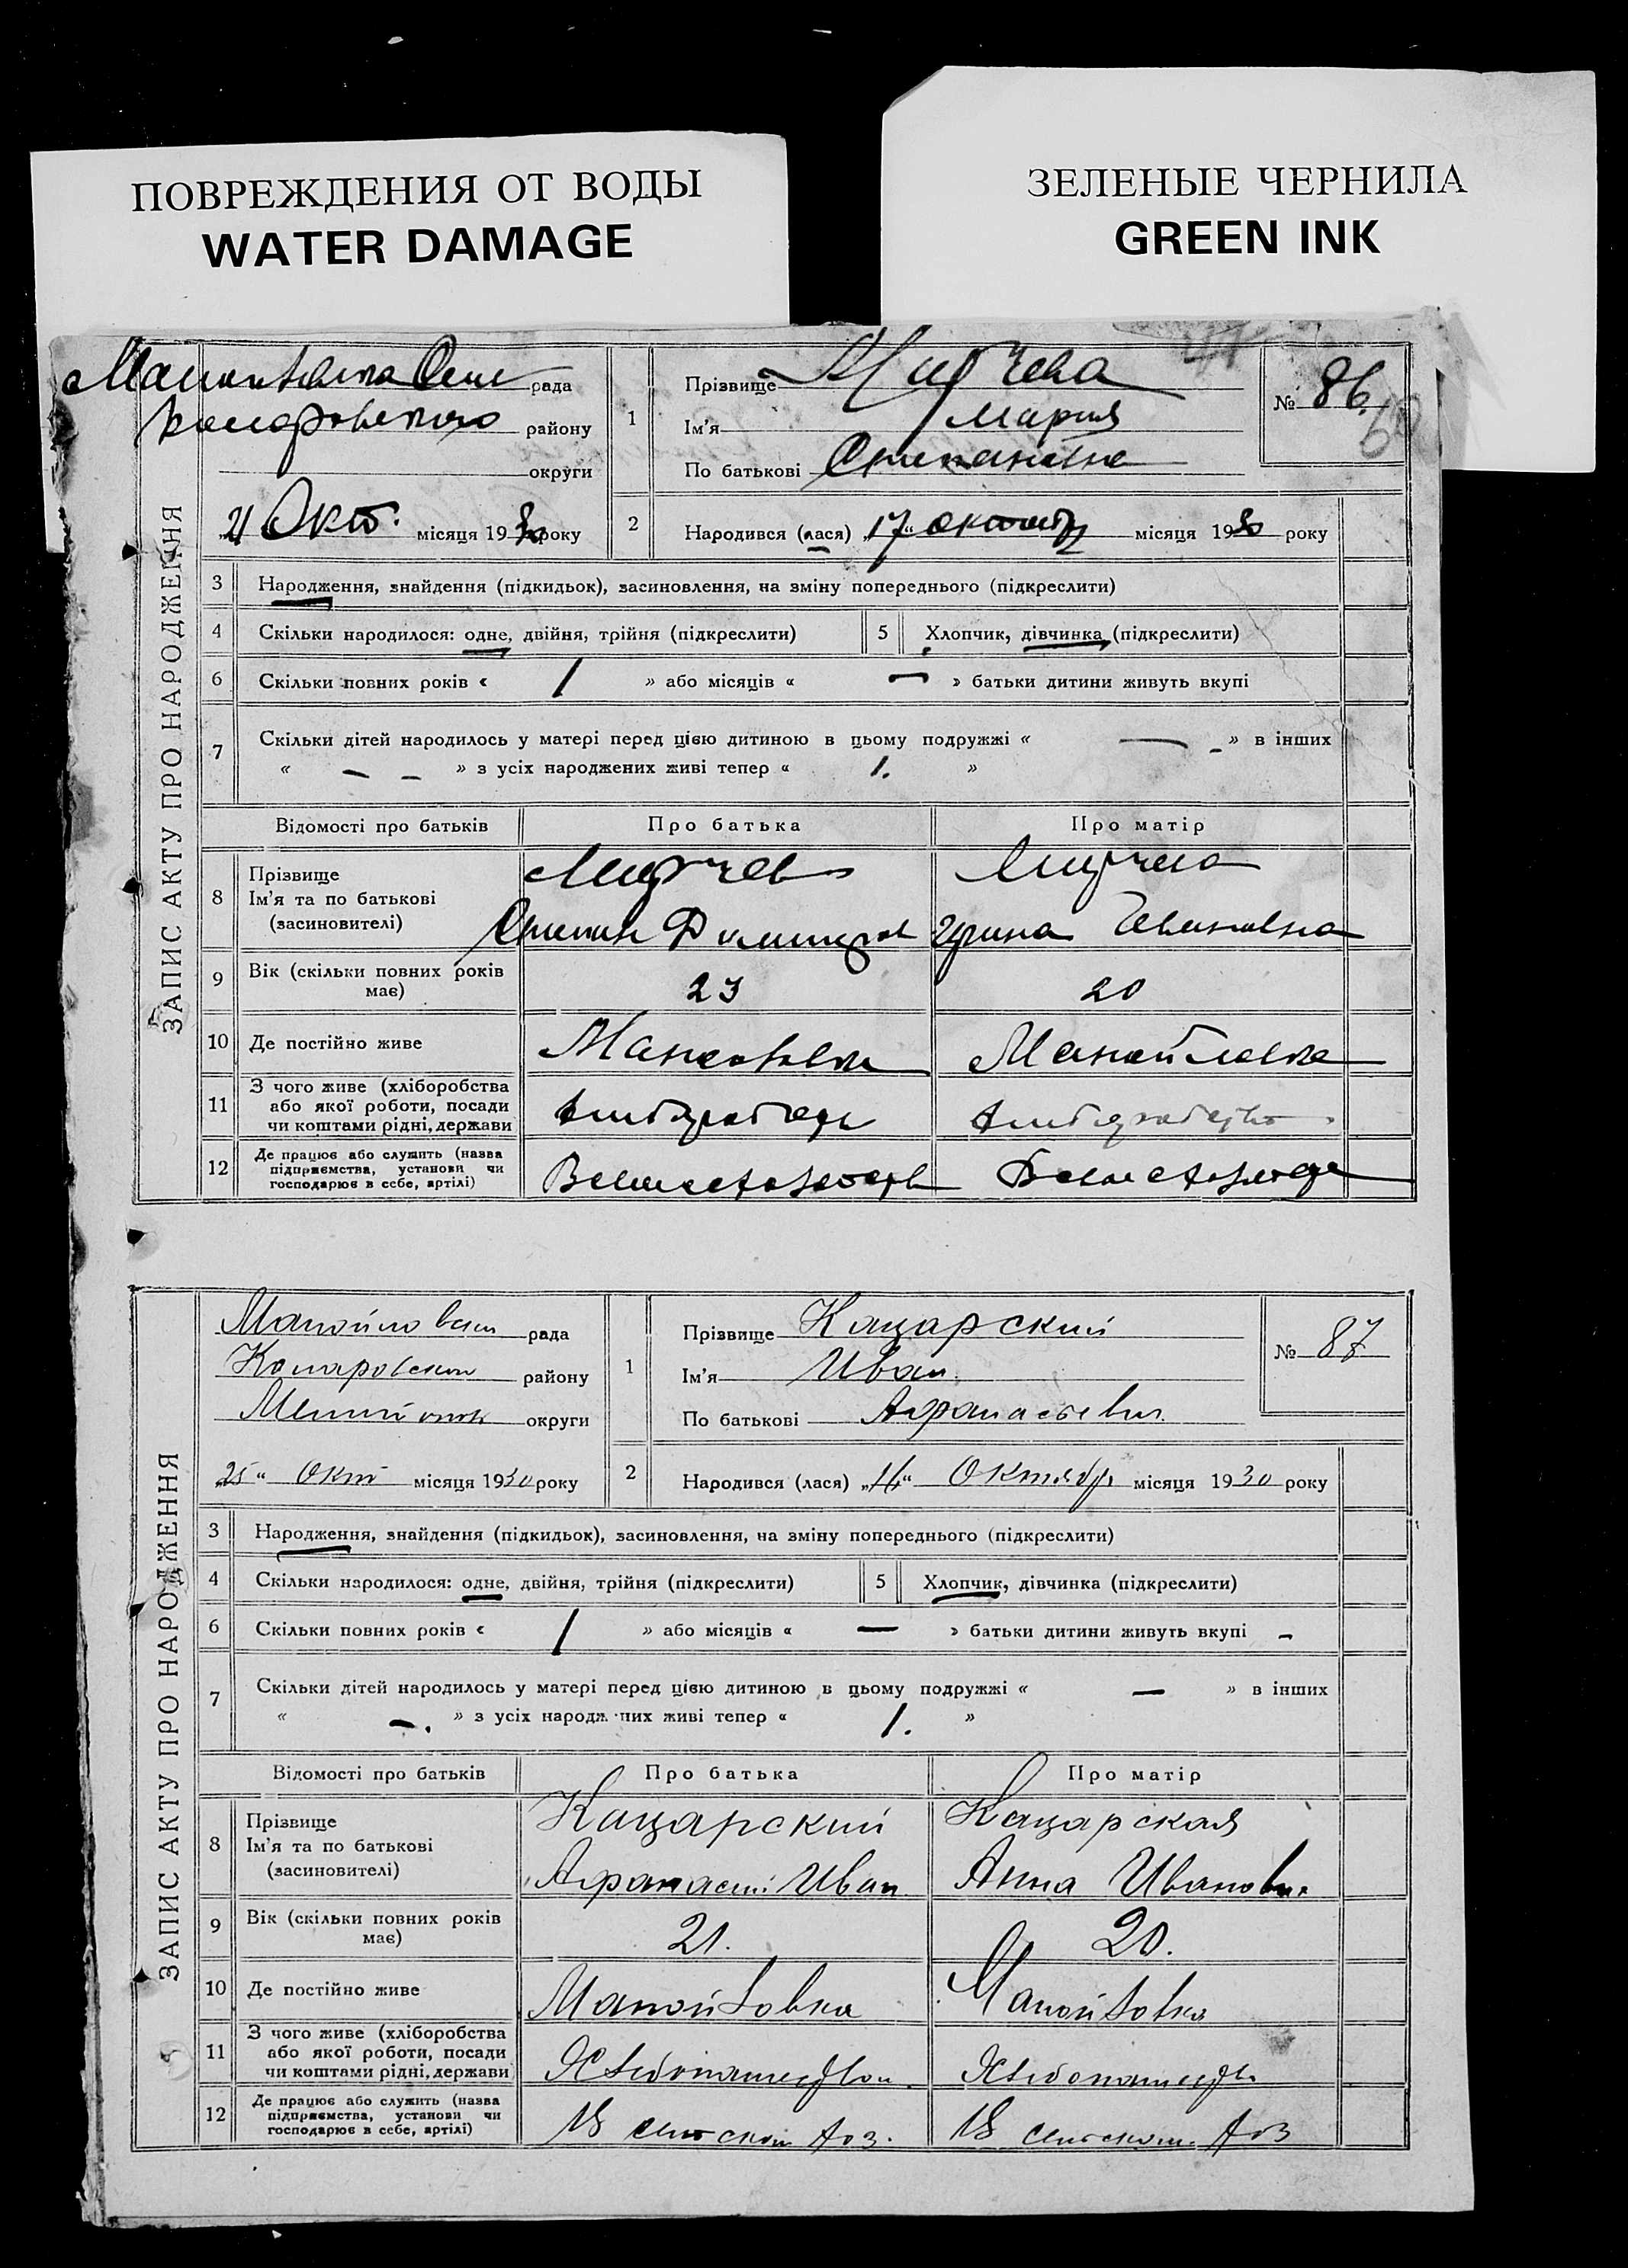 ПОВРЕЖДЕНИЯ ОТ ВОДЫ
WATER DAMAGE
ЗЕЛЕНЫЕ ЧЕРНИЛА
GREEN INK
ЗАПИС АКТУ ПРО НАРОДЖЕННЯ
рада
району
округи
21 Окт. місяця 1930 року
1
Прізвище
Ім'я Мария
По батькові Степановна
№ 86
2
Народився (лася) „17" октября місяця 1930 року
3 Народження, знайдення (підкидьок), засиновлення, на зміну попереднього (підкреслити)
4 Скільки народилося: одне, двійня, трійня (підкреслити) 5 Хлопчик, дівчинка (підкреслити)
6 Скільки повних років « 1 » або місяців « — » батьки дитини живуть вкупі
7 Скільки дітей народилось у матері перед цією дитиною в цьому подружжі « — » в інших
« — — » з усіх народжених живі тепер « 1. »
Відомості про батьків Про батька Про матір
8 Прізвище
Ім'я та по батькові
(засиновителі)
Степан Димитров Ирина Ивановна
9 Вік (скільки повних років має) 23 20
10 Де постійно живе Манойловка Манойловка
11 З чого живе (хліборобства
або якої роботи, посади
чи коштами рідні, держави
12 Де працює або служить (назва
підприємства, установи чи
господарює в себе, артілі)
ЗАПИС АКТУ ПРО НАРОДЖЕННЯ
Манойловская рада
Комаровский району
округи
„25" Окт місяця 1930 року
1
Прізвище Кацарский
Ім'я Иван
По батькові Афанасьевич
№ 87
2
Народився (лася) „16" Октября місяця 1930 року
3 Народження, знайдення (підкидьок), засиновлення, на зміну попереднього (підкреслити)
4 Скільки народилося: одне, двійня, трійня (підкреслити) 5 Хлопчик, дівчинка (підкреслити)
6 Скільки повних років « 1 » або місяців « — » батьки дитини живуть вкупі –
7 Скільки дітей народилось у матері перед цією дитиною в цьому подружжі « — » в інших
« –. » з усіх народж них живі тепер « 1. »
Відомості про батьків Про батька Про матір
8 Прізвище Кацарский Кацарская
Ім'я та по батькові
(засиновителі)
Афанасий Иван Анна Ивановн.
9 Вік (скільки повних років має) 21. 20.
10 Де постійно живе Манойловка Манойловка
11 З чого живе (хліборобства
або якої роботи, посади
чи коштами рідні, держави
12 Де працює або служить (назва
підприємства, установи чи
господарює в себе, артілі)
В сельском хоз. В сельском. хоз